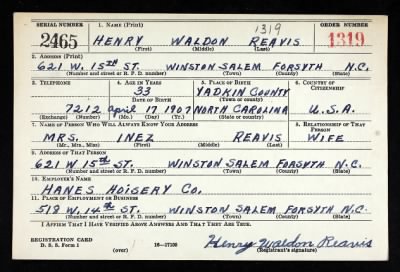 SERIAL NUMBER 1. NAME (Print) ORDER NUMBER
1319
2465 HENRY WALDON REAVIS 1319
(First) (Middle) (Last)
2. ADDRESS (Print)
621 W. 15TH ST. WINSTON SALEM FORSYTH N.C.
(Number and street or R. F. D. number) (Town) (County) (State)
3. TELEPHONE 4. AGE IN YEARS 5. PLACE OF BIRTH 6. COUNTRY OF CITIZENSHIP
33 YADKIN COUNTY
DATE OF BIRTH (Town or county)
7212 April 17 1907 NORTH CAROLINA U.S.A.
(Exchange) (Number) (Mo.) (Day) (Yr.) (State or country)
7. NAME OF PERSON WHO WILL ALWAYS KNOW YOUR ADDRESS 8. RELATIONSHIP OF THAT PERSON
MRS. INEZ REAVIS WIFE
(Mr., Mrs., Miss) (First) (Middle) (Last)
9. ADDRESS OF THAT PERSON
621 W 15TH ST. WINSTON SALEM FORSYTH N.C.
(Number and street or R. F. D. number) (Town) (County) (State)
10. EMPLOYER'S NAME
HANES HOIGERY CO.
11. PLACE OF EMPLOYMENT OR BUSINESS
518 W. 14TH ST. WINSTON SALEM FORSYTH N.C.
(Number and street or R. F. D. number) (Town) (County) (State)
I AFFIRM THAT I HAVE VERIFIED ABOVE ANSWERS AND THAT THEY ARE TRUE.
REGISTRATION CARD
D. S. S. Form 1 16—17105 Henry Waldon Reavis
(over) (Registrant's signature)